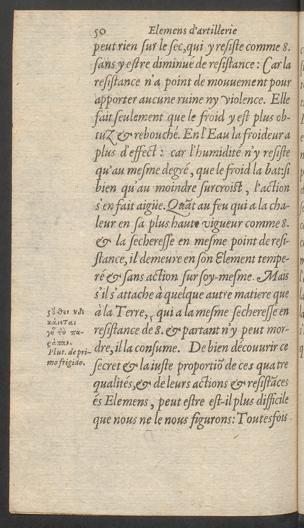 50 Elemens d'artillerie
peut rien sur le sec, qui y resiste comme 8.
sans y estre diminue de resistance : Car la
resistance n'a point de mouuement pour
apporter aucune ruine ny violence. Elle
fait seulement que le froid y est plus ob-
tuz & rebouché. En l'Eau la froideur a
plus d'effect : car l'humidité n'y resiste
qu'au mesme degré, que le froid la bat: si
bien qu'au moindre surcroist, l'action
s'en fait aigüe. Quãt au feu qui a la cha-
leur en sa plus haute vigueur comme 8.
& la secheresse en mesme point de resi-
stance, il demeure en son Element tempe-
ré & sans action sur soy-mesme. Mais
s'il s'attache à quelque autre matiere que
à la Terre, qui a la mesme secheresse en
resistance de 8. & partant n'y peut mor-
dre, il la consume. De bien découurir ce
secret & la iuste proportiõ de ces quatre
qualités, & de leurs actions & resistãces
és Elemens, peut estre est-il plus difficile
que nous ne le nous figurons: Toutesfois
Plut. de pri-
mo frigido.